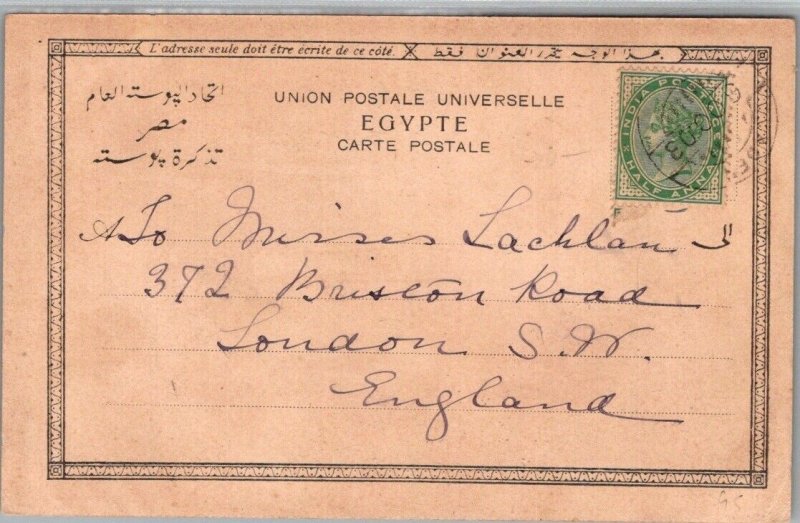 L'adresse seule doit être écrite de ce côté.
هذا الوجه يحرر العنوان فقط
اتحاد البوسته العام
مصر
تذكرة بوسته
UNION POSTALE UNIVERSELLE
EGYPTE
CARTE POSTALE
INDIA POSTAGE
HALF ANNA
A To Misses Lachlan الى
372 Brixton Road
London S.W.
England